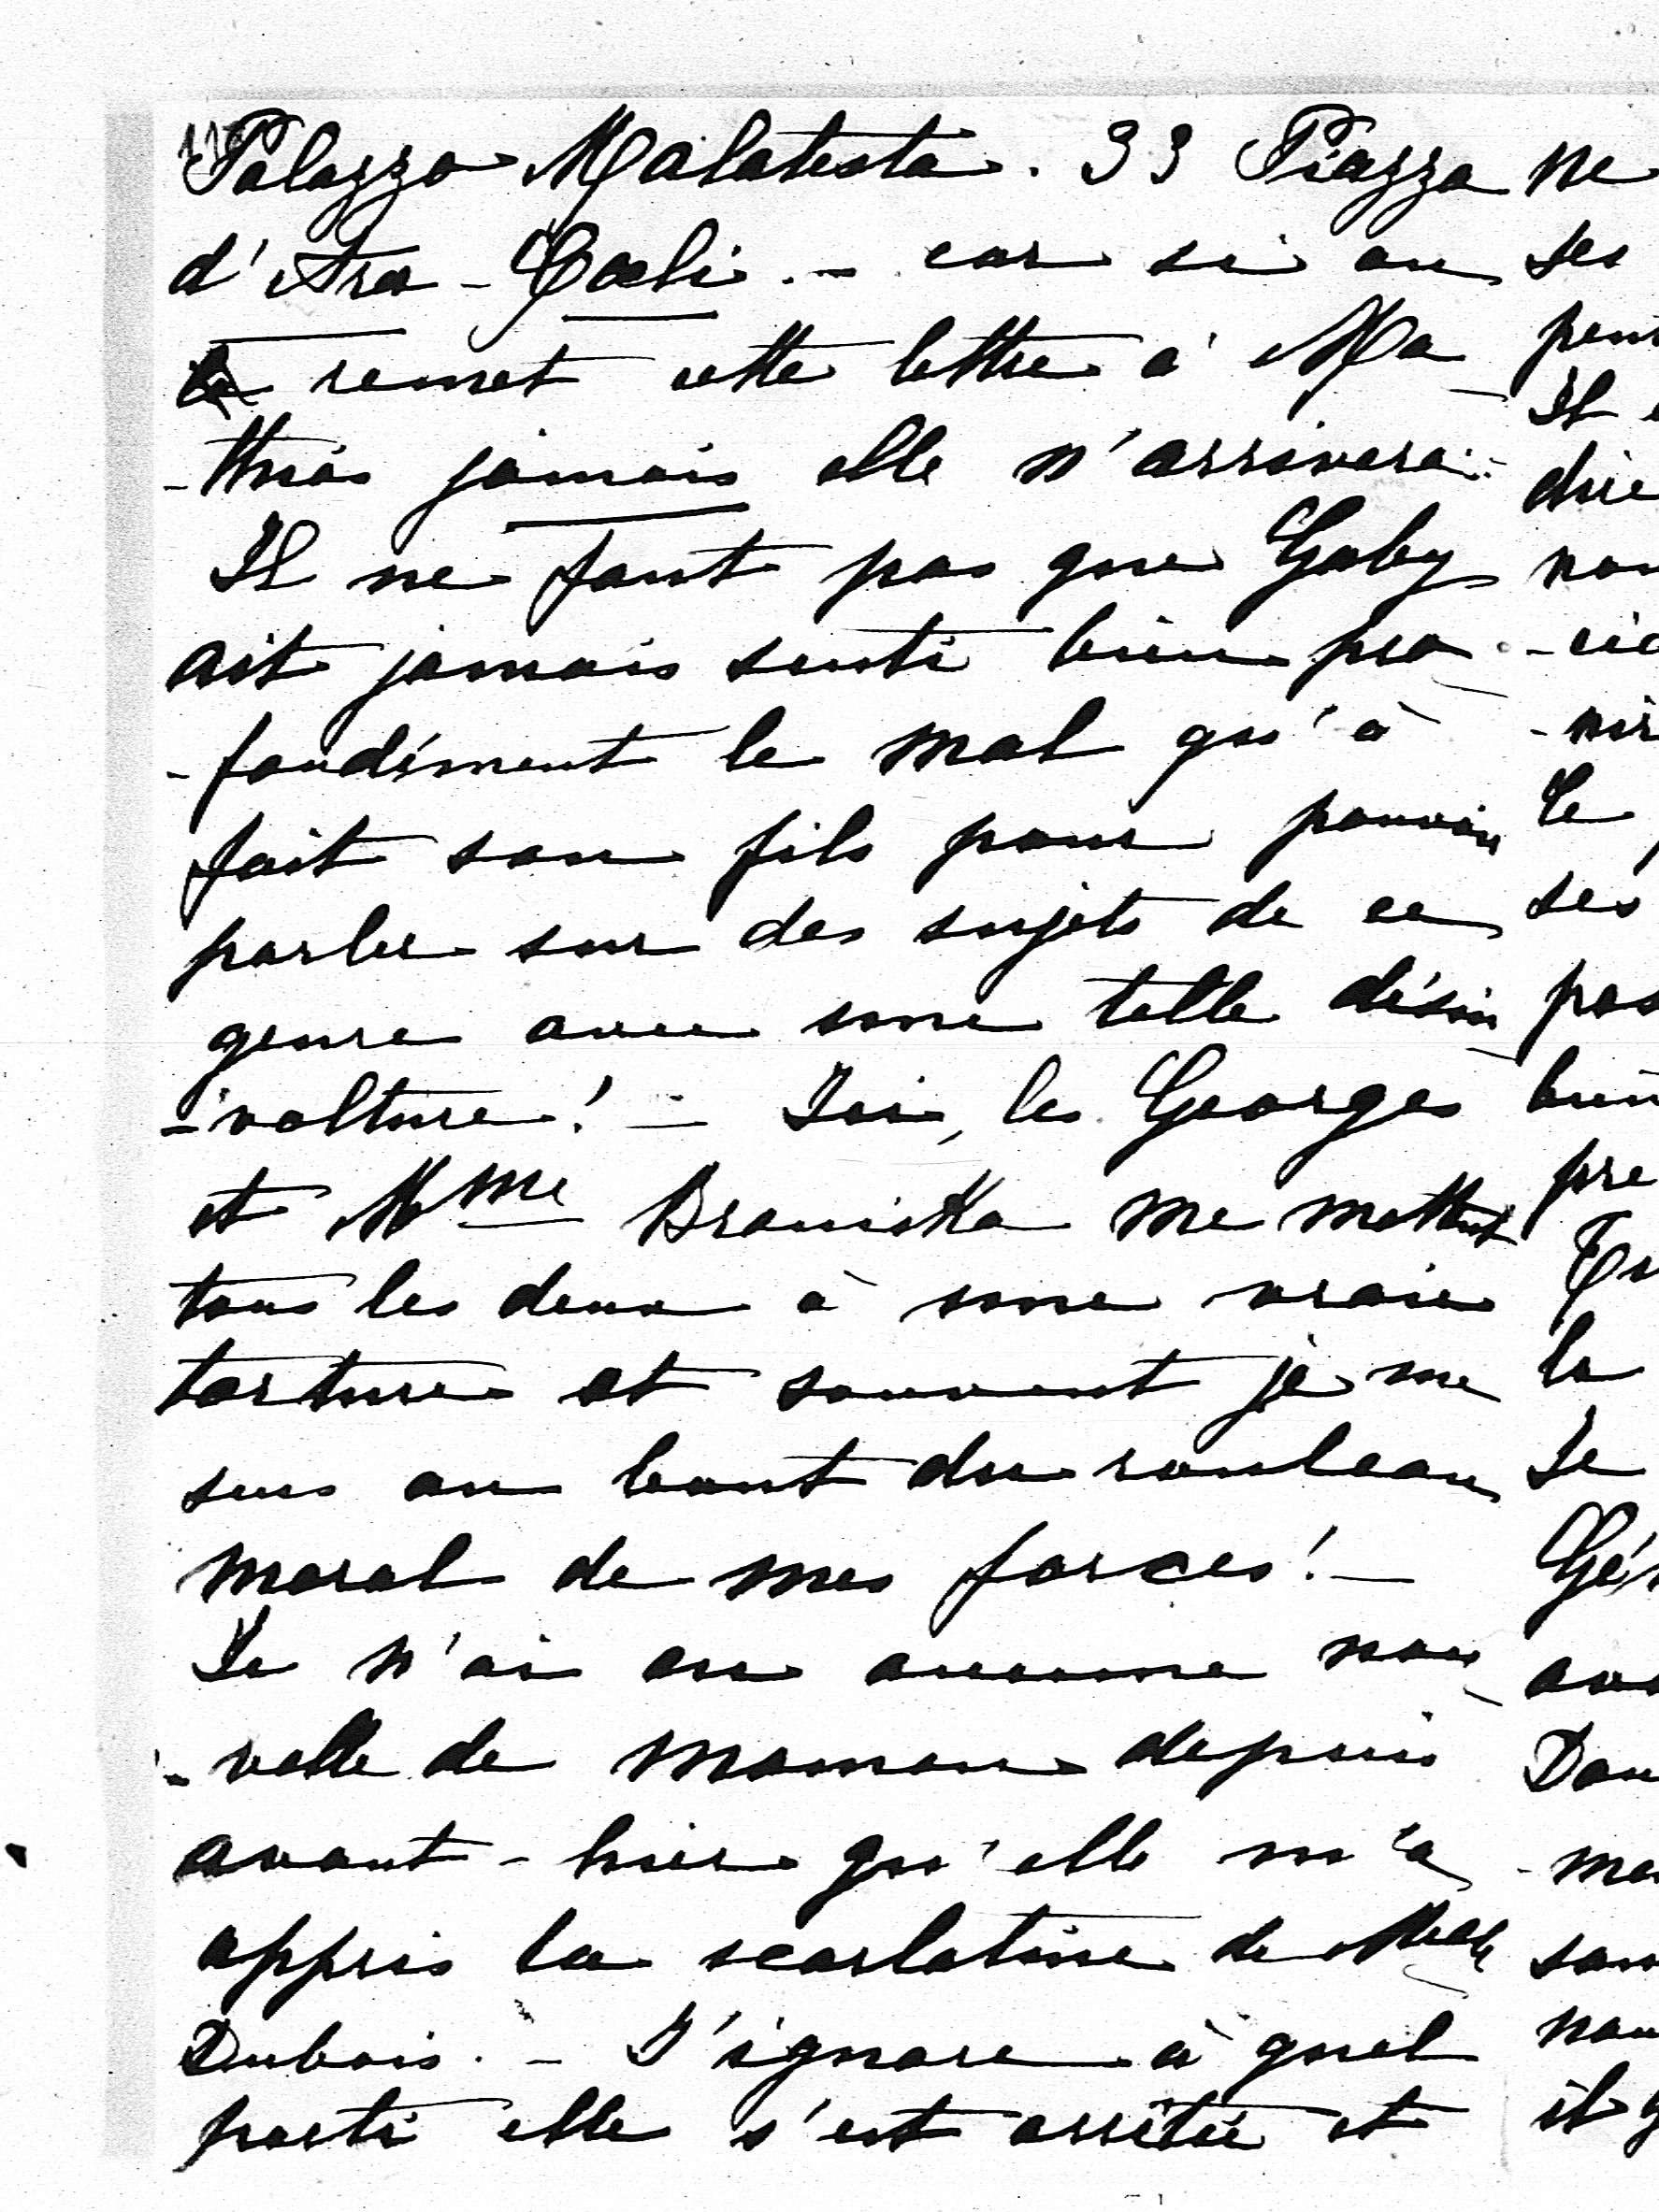 Palazzo Malatesta. 33 Piazza
d'Ara-Coeli. - car si on
remet cette lettre à Ma
-thias jamais elle n'arrivera.
Il ne faut pas que Gaby
ait jamais senti bien pro
-fondément le mal qu'à
fait son fils pour pouvoir
parler sur des sujets de ce
genre avec une telle désin
-volture! - Ici, les Georges
et Mme Braniska me mettent
tous les deux à une vraie
torture et souvent je me
sens au bout du rouleau
moral de mes forces! -
Je n'ai eu aucune nou
-velle de maman depuis
avant-hier qu'elle m'a
appris la scarlatine de Melle
Dubois. - J'ignore à quel
parti elle s'est arrêtée et
ne
ses
Il
le
ses
pas
la
Je